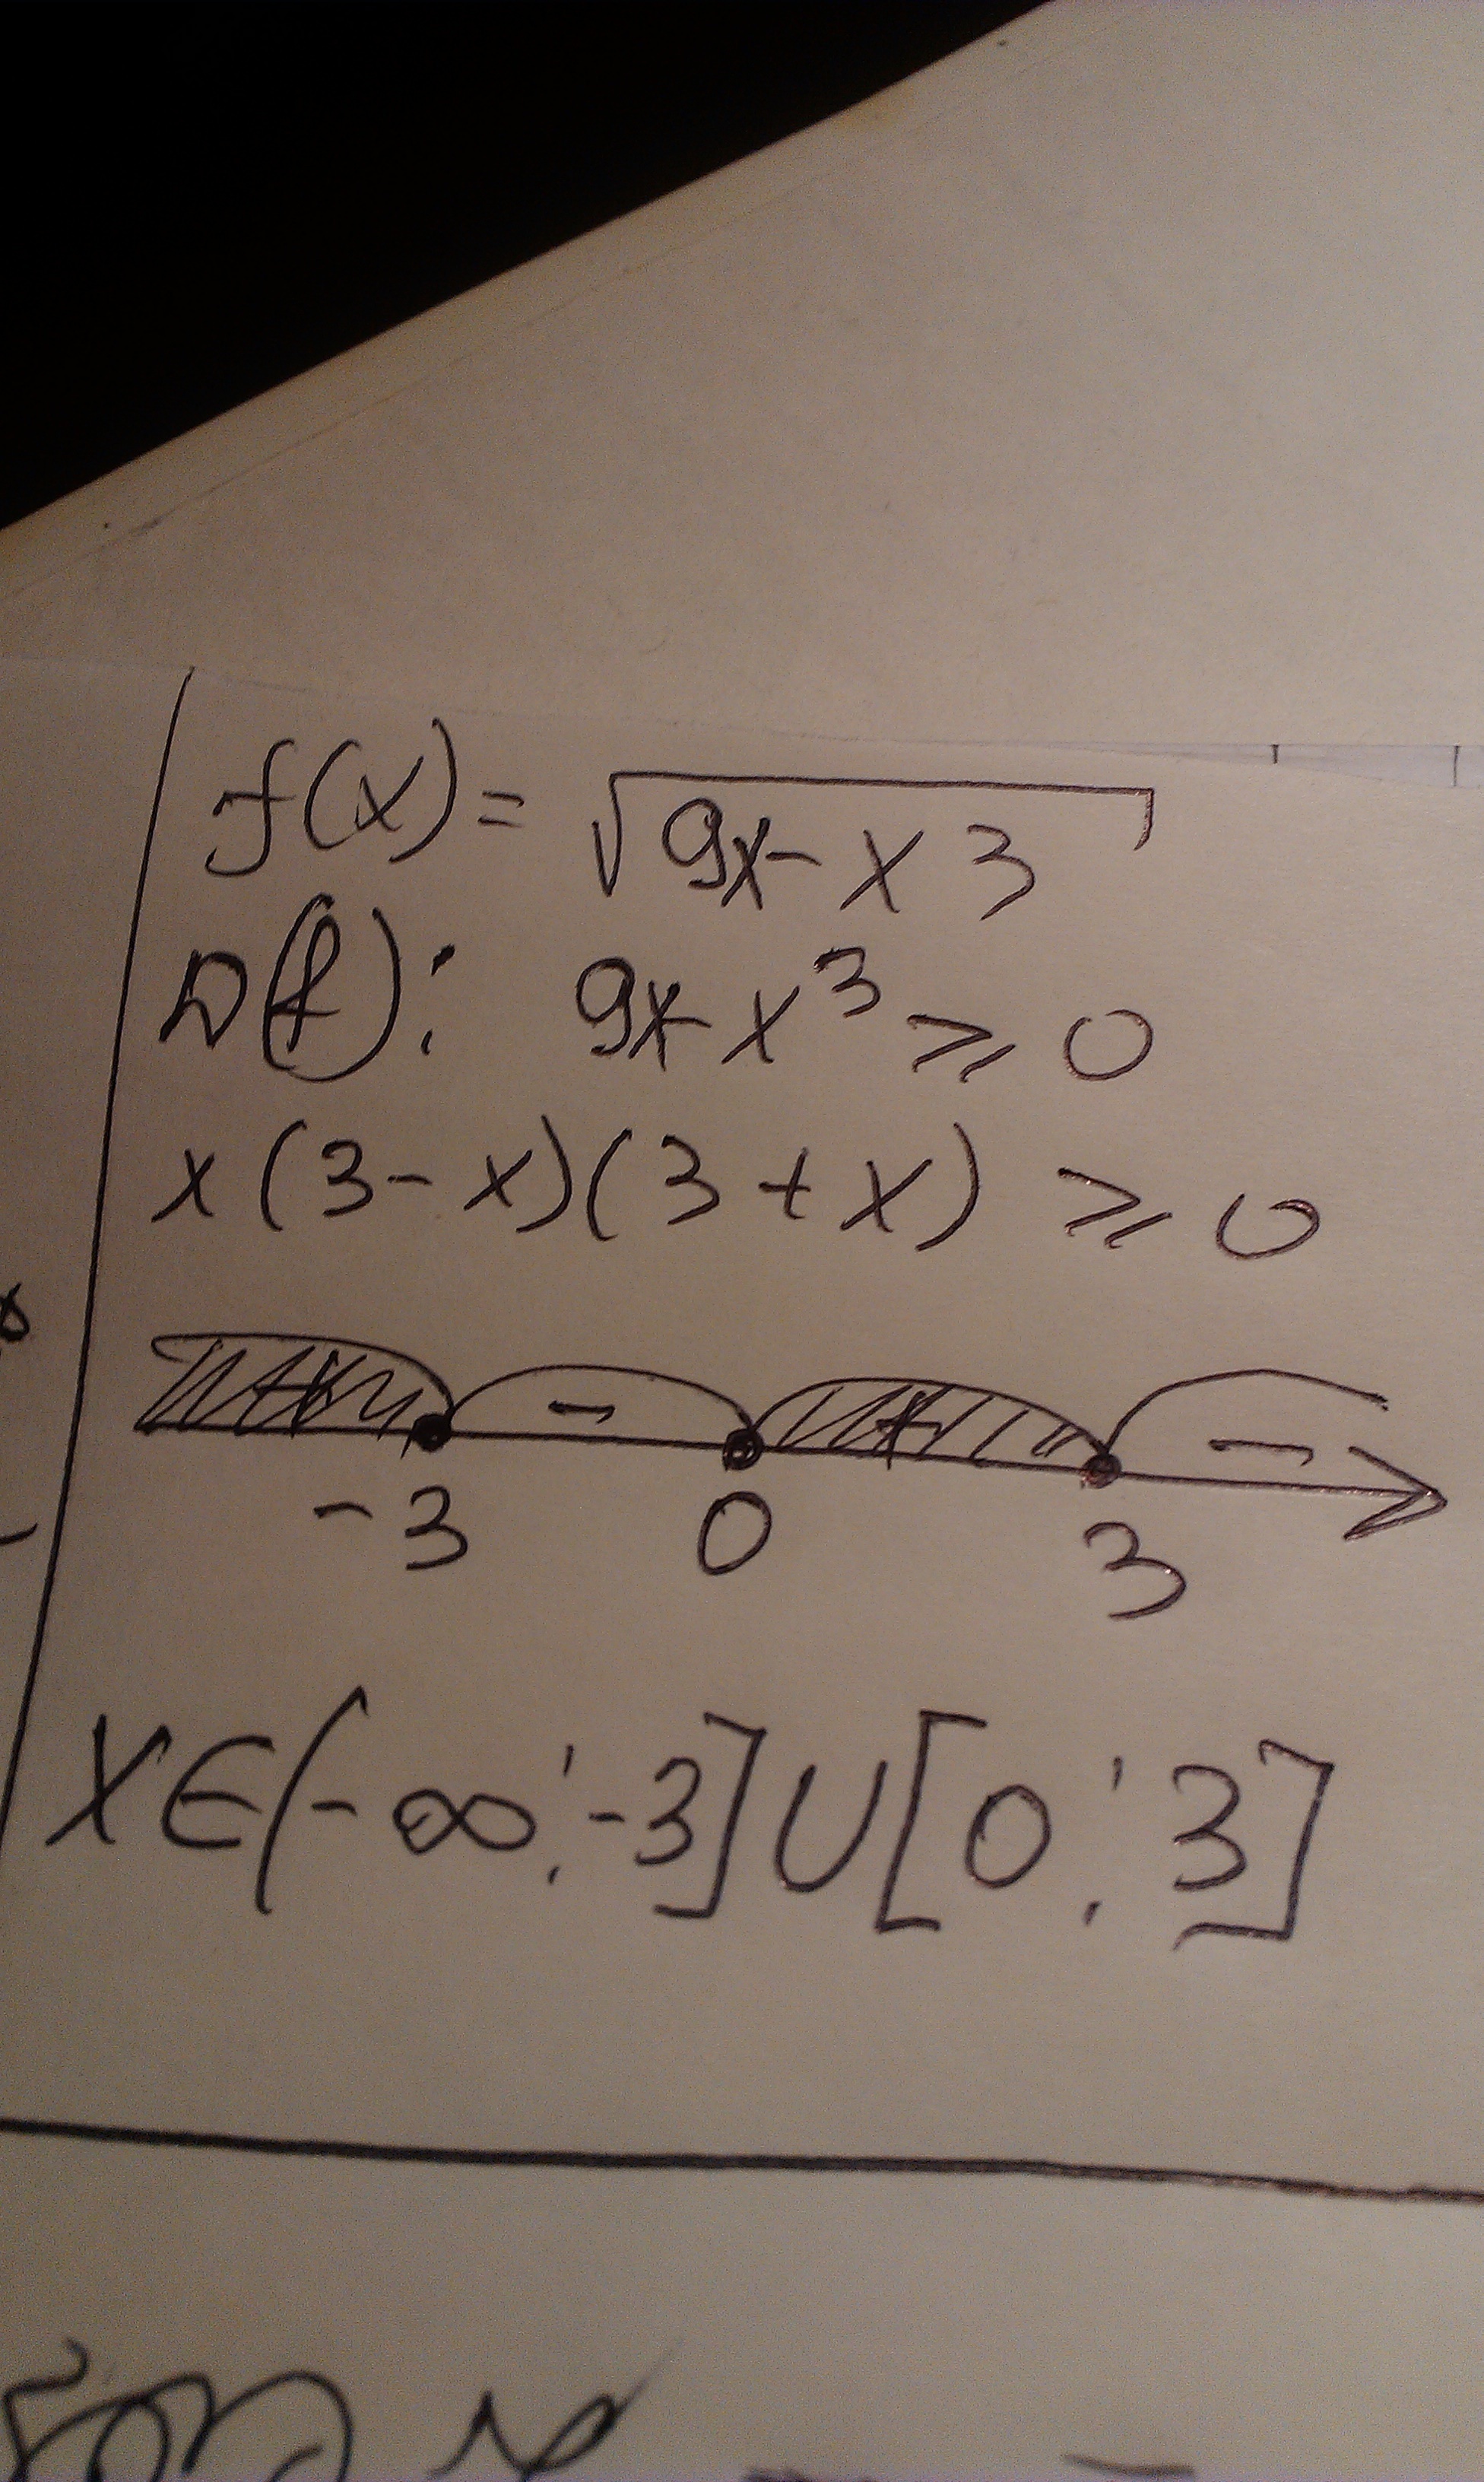 f(x) = √9x - x3
D(f): 9x - x³ ⩾ 0
x(3-x)(3+x) ⩾ 0
+ - + -
-3 0 3
x∈(-∞;-3]∪[0;3]